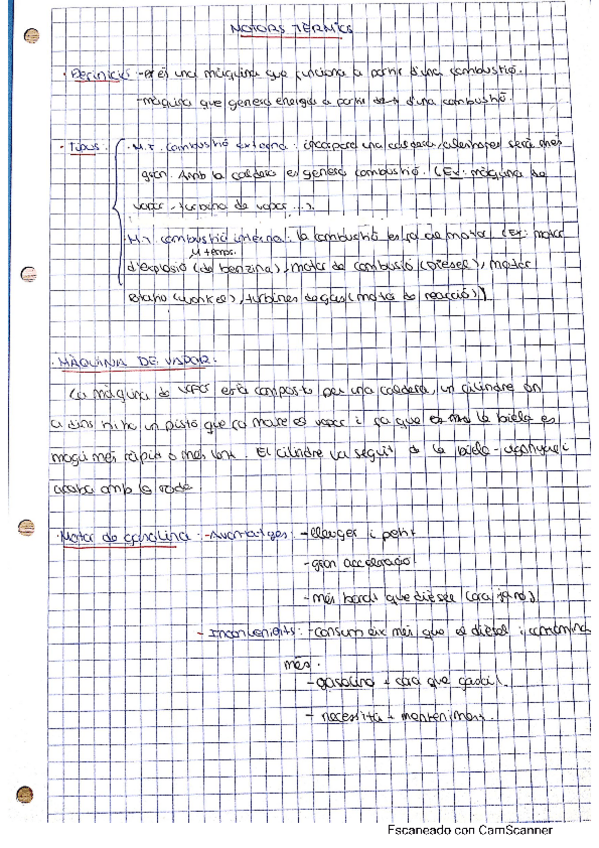 MOTORS TÈRMICS
· Definició - és una màquina que funciona a partir d'una combustió.
- màquina que genera energia a partir d'una combustió.
· Tipus · M.T. combustió externa: incorpora una caldera, serà més
gran. Amb la caldera es genera combustió. (Ex: màquina de
vapor, turbina de vapor ...).
· M.T combustió interna: la combustió es fa al motor (Ex: motor
4 temps.
d'explosió (de benzina), motor de combustió (Diesel), motor
(wankel), turbines de gas (motor de reacció))
· MÀQUINA DE VAPOR:
La màquina de vapor està composta per una caldera, un cilindre on
a dins hi ha un pistó que fa moure el vapor i fa que la biela es
mogui més ràpid o més lent. El cilindre va seguit de la biela - i
acaba amb la roda
· Motor de gasolina: - Avantatges: - lleuger i petit
- gran acceleració
- més barat que dièsel
- Inconvenients: - consumeix més que el diesel i contamina
més.
- gasolina + cara que gasoil.
- necessita + manteniment.
Escaneado con CamScanner